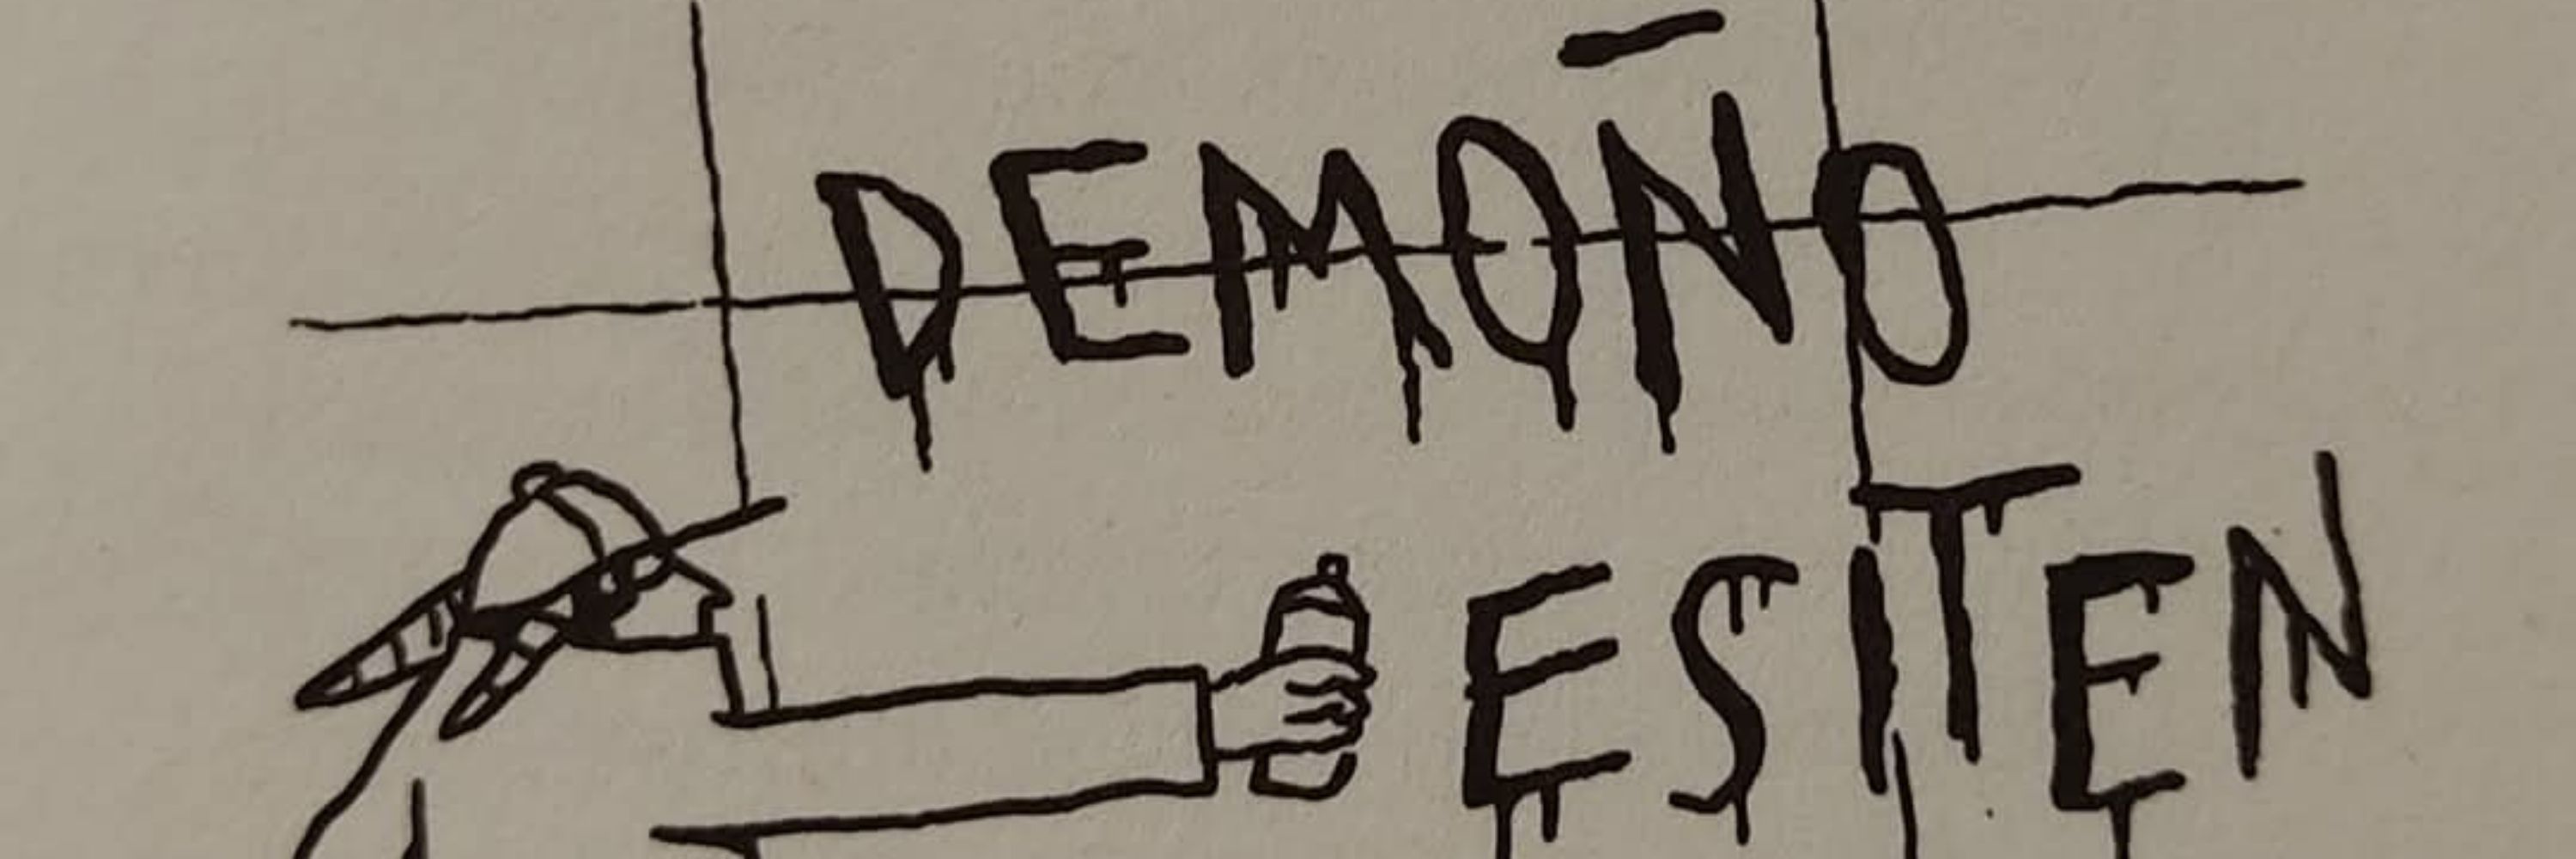 DEMOÑO
ESITEN